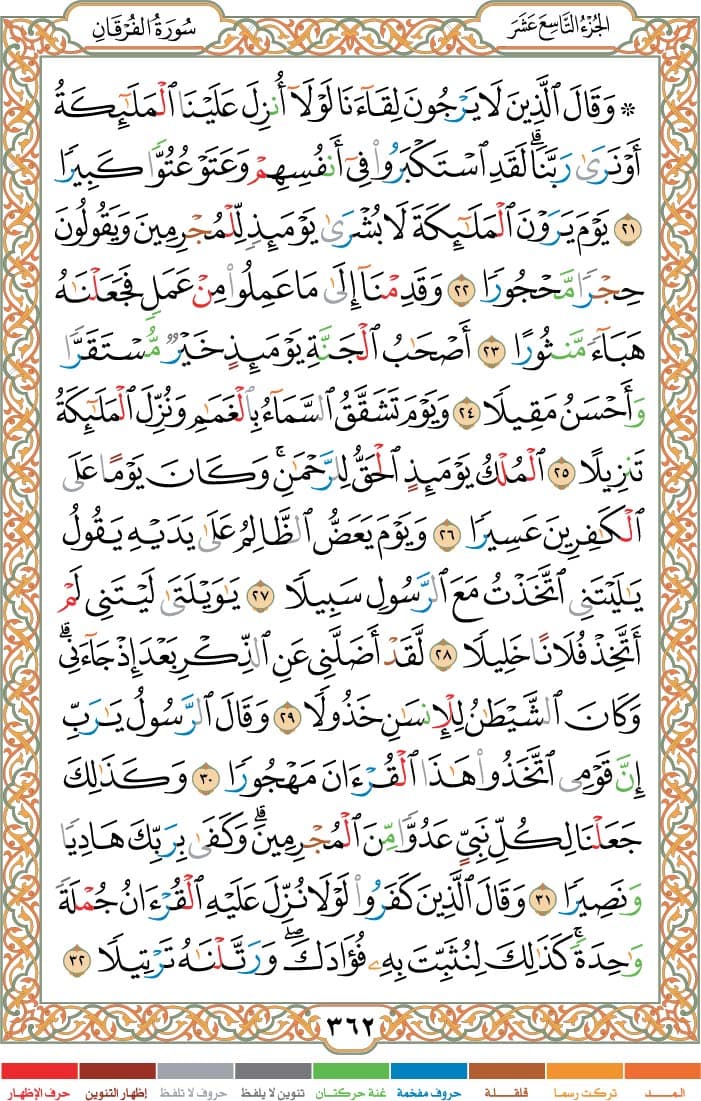 الجُزْءُ التَّاسِعَ عَشَرَ
سُورَةُ الفُرْقَانِ
۞ وَقَالَ ٱلَّذِينَ لَا يَرۡجُونَ لِقَآءَنَا لَوۡلَآ أُنزِلَ عَلَيۡنَا ٱلۡمَلَٰٓئِكَةُ
أَوۡ نَرَىٰ رَبَّنَاۗ لَقَدِ ٱسۡتَكۡبَرُواْ فِيٓ أَنفُسِهِمۡ وَعَتَوۡ عُتُوّٗا كَبِيرٗا
٢١ يَوۡمَ يَرَوۡنَ ٱلۡمَلَٰٓئِكَةَ لَا بُشۡرَىٰ يَوۡمَئِذٖ لِّلۡمُجۡرِمِينَ وَيَقُولُونَ
حِجۡرٗا مَّحۡجُورٗا ٢٢ وَقَدِمۡنَآ إِلَىٰ مَا عَمِلُواْ مِنۡ عَمَلٖ فَجَعَلۡنَٰهُ
هَبَآءٗ مَّنثُورًا ٢٣ أَصۡحَٰبُ ٱلۡجَنَّةِ يَوۡمَئِذٍ خَيۡرٞ مُّسۡتَقَرّٗا
وَأَحۡسَنُ مَقِيلٗا ٢٤ وَيَوۡمَ تَشَقَّقُ ٱلسَّمَآءُ بِٱلۡغَمَٰمِ وَنُزِّلَ ٱلۡمَلَٰٓئِكَةُ
تَنزِيلًا ٢٥ ٱلۡمُلۡكُ يَوۡمَئِذٍ ٱلۡحَقُّ لِلرَّحۡمَٰنِۚ وَكَانَ يَوۡمًا عَلَى
ٱلۡكَٰفِرِينَ عَسِيرٗا ٢٦ وَيَوۡمَ يَعَضُّ ٱلظَّالِمُ عَلَىٰ يَدَيۡهِ يَقُولُ
يَٰلَيۡتَنِي ٱتَّخَذۡتُ مَعَ ٱلرَّسُولِ سَبِيلٗا ٢٧ يَٰوَيۡلَتَىٰ لَيۡتَنِي لَمۡ
أَتَّخِذۡ فُلَانًا خَلِيلٗا ٢٨ لَّقَدۡ أَضَلَّنِي عَنِ ٱلذِّكۡرِ بَعۡدَ إِذۡ جَآءَنِيۗ
وَكَانَ ٱلشَّيۡطَٰنُ لِلۡإِنسَٰنِ خَذُولٗا ٢٩ وَقَالَ ٱلرَّسُولُ يَٰرَبِّ
إِنَّ قَوۡمِي ٱتَّخَذُواْ هَٰذَا ٱلۡقُرۡءَانَ مَهۡجُورٗا ٣٠ وَكَذَٰلِكَ
جَعَلۡنَا لِكُلِّ نَبِيٍّ عَدُوّٗا مِّنَ ٱلۡمُجۡرِمِينَۗ وَكَفَىٰ بِرَبِّكَ هَادِيٗا
وَنَصِيرٗا ٣١ وَقَالَ ٱلَّذِينَ كَفَرُواْ لَوۡلَا نُزِّلَ عَلَيۡهِ ٱلۡقُرۡءَانُ جُمۡلَةٗ
وَٰحِدَةٗۚ كَذَٰلِكَ لِنُثَبِّتَ بِهِۦ فُؤَادَكَۖ وَرَتَّلۡنَٰهُ تَرۡتِيلٗا ٣٢
٣٦٢
المــــد تركت رسما قلقلة حروف مفخمة غنة حركتان تنوين لا يلفظ حروف لا تلفظ إظهار التنوين حرف الإظهار